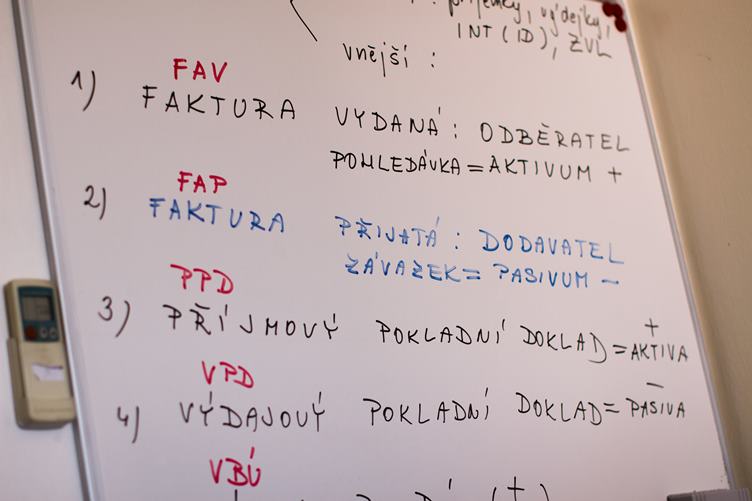 příjemky, výdejky,
INT (ID), ZVL
vnější :
FAV
1) FAKTURA VYDANÁ : ODBĚRATEL
POHLEDÁVKA = AKTIVUM +
FAP
2) FAKTURA PŘIJATÁ : DODAVATEL
ZÁVAZEK = PASIVUM −
PPD
3) PŘÍJMOVÝ POKLADNÍ DOKLAD = AKTIVA +
VPD
4) VÝDAJOVÝ POKLADNÍ DOKLAD = PASIVA −
VBÚ
(+)